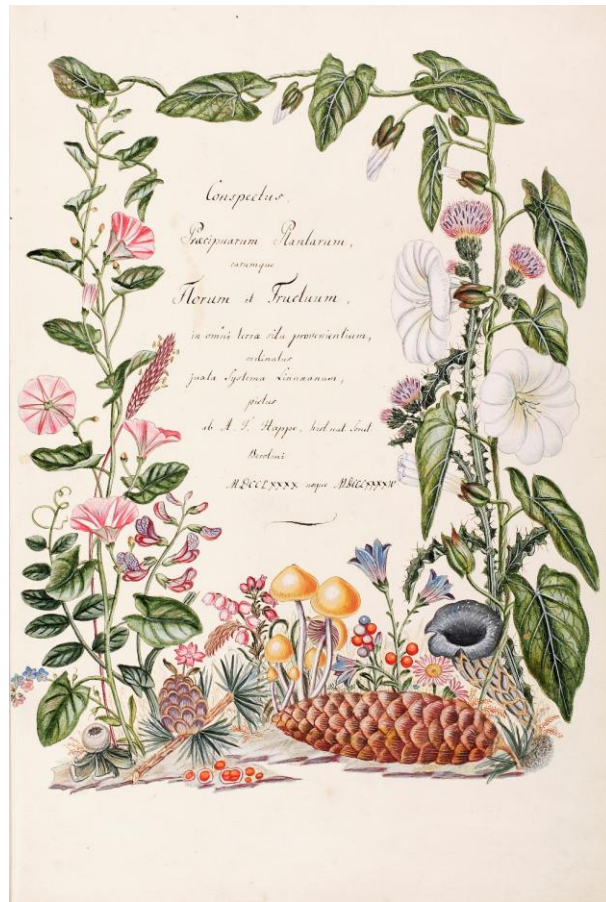 Conspectus,
Præcipuarum Plantarum,
earumque
Florum et Fructuum,
in omni terræ situ provenientium,
ordinatus
juxta Systema Linnæanum,
pictus
ab A. F. Happe, hist. nat.
Berolini
MDCCLXXXX usque